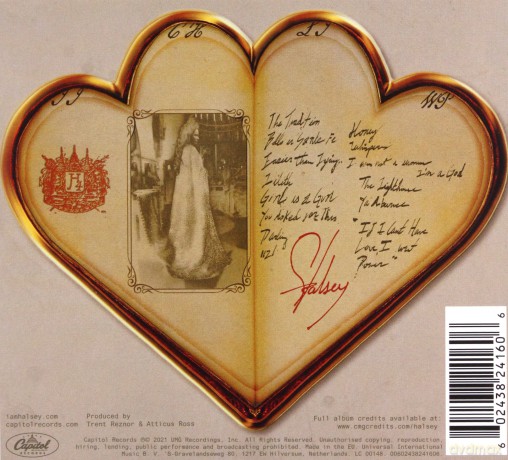 C H
L J
J J
W P
H
The Tradition
Bells in Santa Fe
Easier than Lying
Lilith
Girl is a Gun
You Asked for This
Darling
1121
Honey
Whispers
I am not a woman
I'm a God
The Lighthouse
Ya'Aburnee
"If I Can't Have
Love, I want
Power"
Halsey
iamhalsey.com
capitolrecords.com
Produced by
Trent Reznor & Atticus Ross
Full album credits available at:
www.cmgcredits.com/halsey
Capitol
Capitol Records ©© 2021 UMG Recordings, Inc. All Rights Reserved. Unauthorised copying, reproduction,
hiring, lending, public performance and broadcasting prohibited. Made in the EU. Universal International
Music B.V. 's-Gravelandseweg 80, 1217 EW Hilversum, Netherlands. LC 00148. 00602438241606
6 02438 24160 6
dvdmax